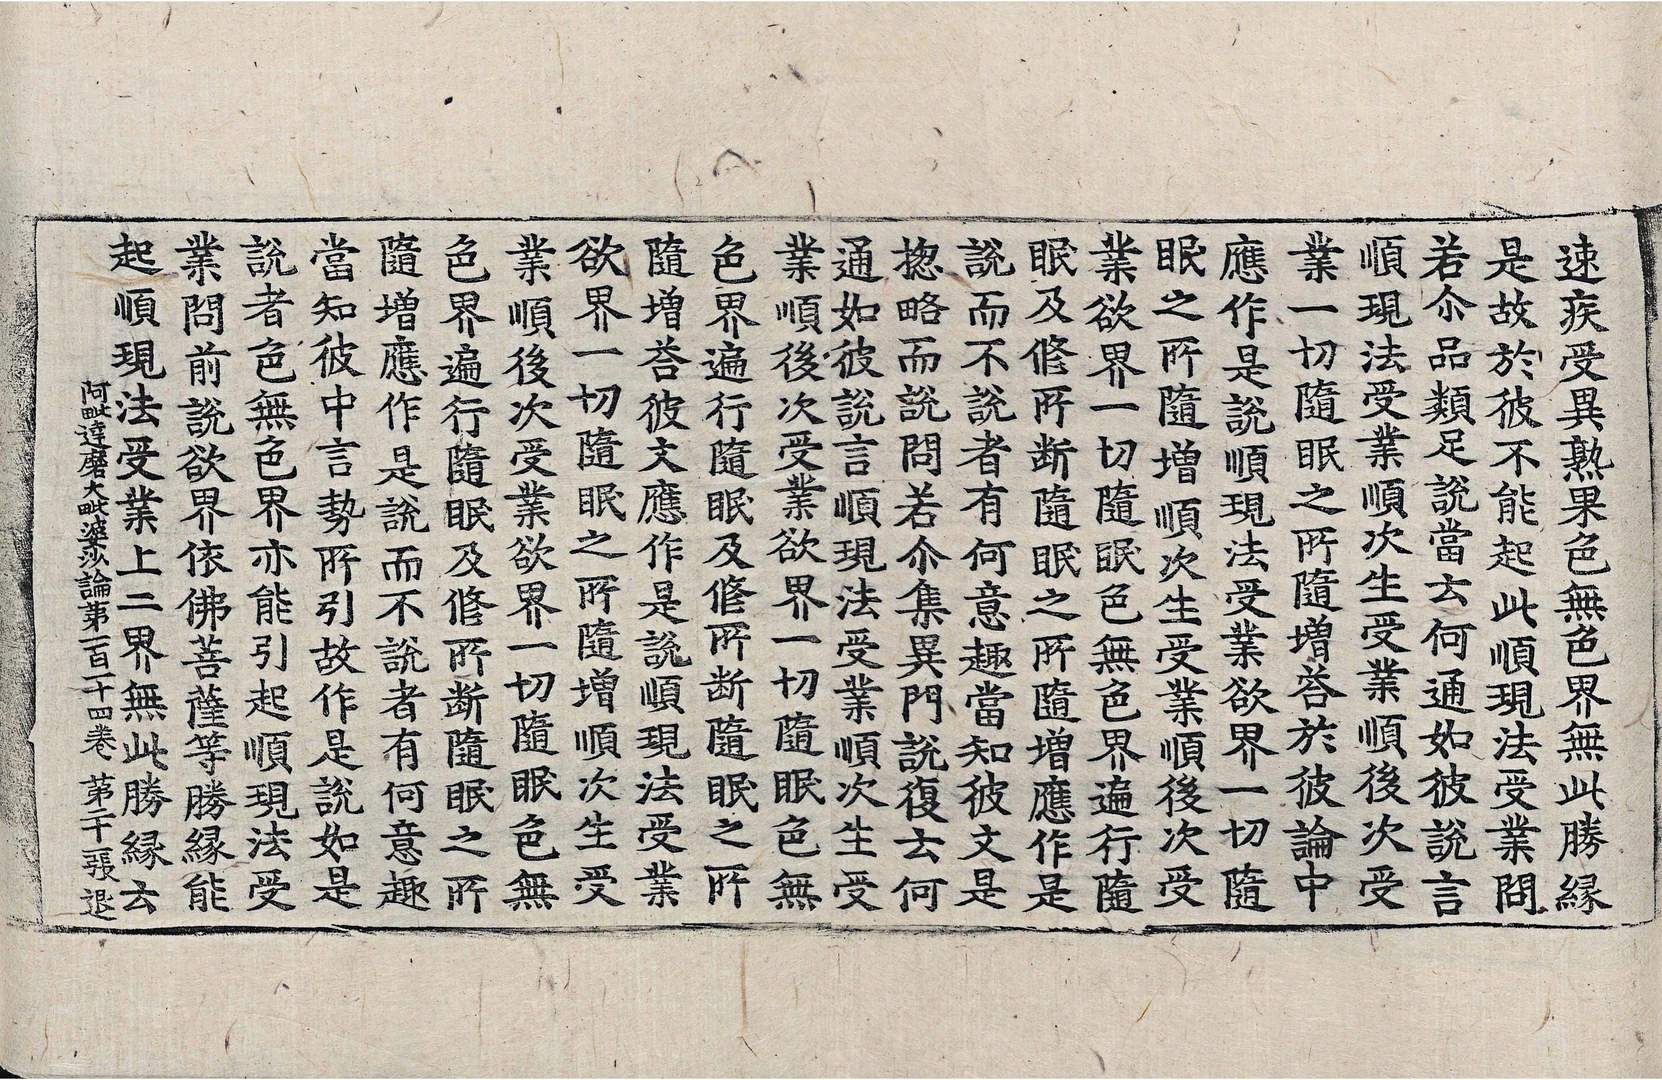 速疾受異熟果色無色界無此勝縁
是故於彼不能起此順現法受業問
若尒品類足說當去何通如彼說言
順現法受業順次生受業順後次受
業一切隨眠之所隨增荅於彼論中
應作是說順現法受業欲界一切隨
眠之所隨增順次生受業順後次受
業欲界一切隨眠色無色界遍行隨
眠及修所断隨眠之所隨增應作是
說而不說者有何意趣當知彼文是
揔略而說問若尒集異門說復去何
通如彼說言順現法受業順次生受
業順後次受業欲界一切隨眠色無
色界遍行隨眠及修所断隨眠之所
隨增荅彼文應作是說順現法受業
欲界一切隨眠之所隨增順次生受
業順後次受業欲界一切隨眠色無
色界遍行隨眠及修所断隨眠之所
隨增應作是說而不說者有何意趣
當知彼中言勢所引故作是說如是
說者色無色界亦能引起順現法受
業問前說欲界依佛菩薩等勝縁能
起順現法受業上二界無此勝縁去
阿毗達磨大毗婆沙論第一百一十四卷 第十一張 退